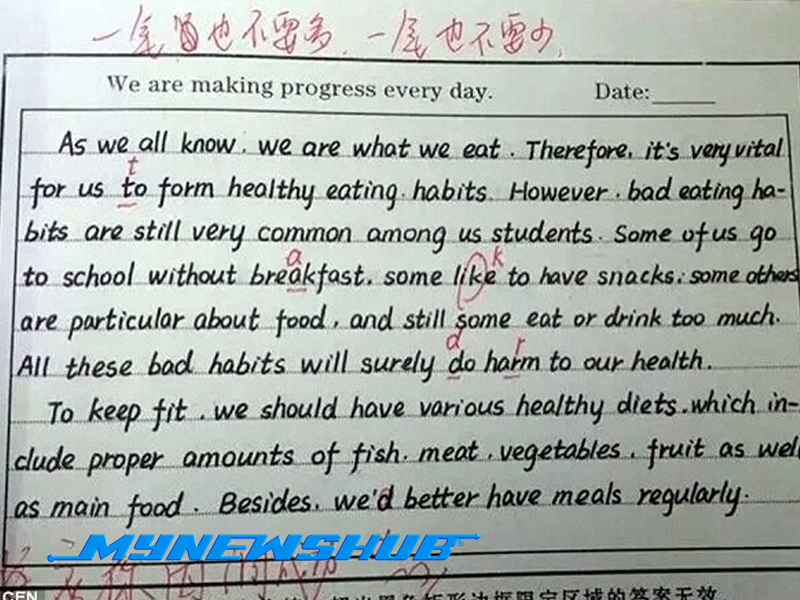 一尾也不要多，一尾也不要少，
We are making progress every day. Date:
As we all know, we are what we eat. Therefore, it's very vital
t
for us to form healthy eating habits. However, bad eating ha-
bits are still very common among us students. Some of us go
a k
to school without breakfast, some like to have snacks, some others
are particular about food, and still some eat or drink too much.
d r
All these bad habits will surely do harm to our health.
To keep fit, we should have various healthy diets, which in-
clude proper amounts of fish, meat, vegetables, fruit as well
as main food. Besides, we'd better have meals regularly.
MYNEWSHUB
CEN
超出黑色矩形边框限定区域的答案无效